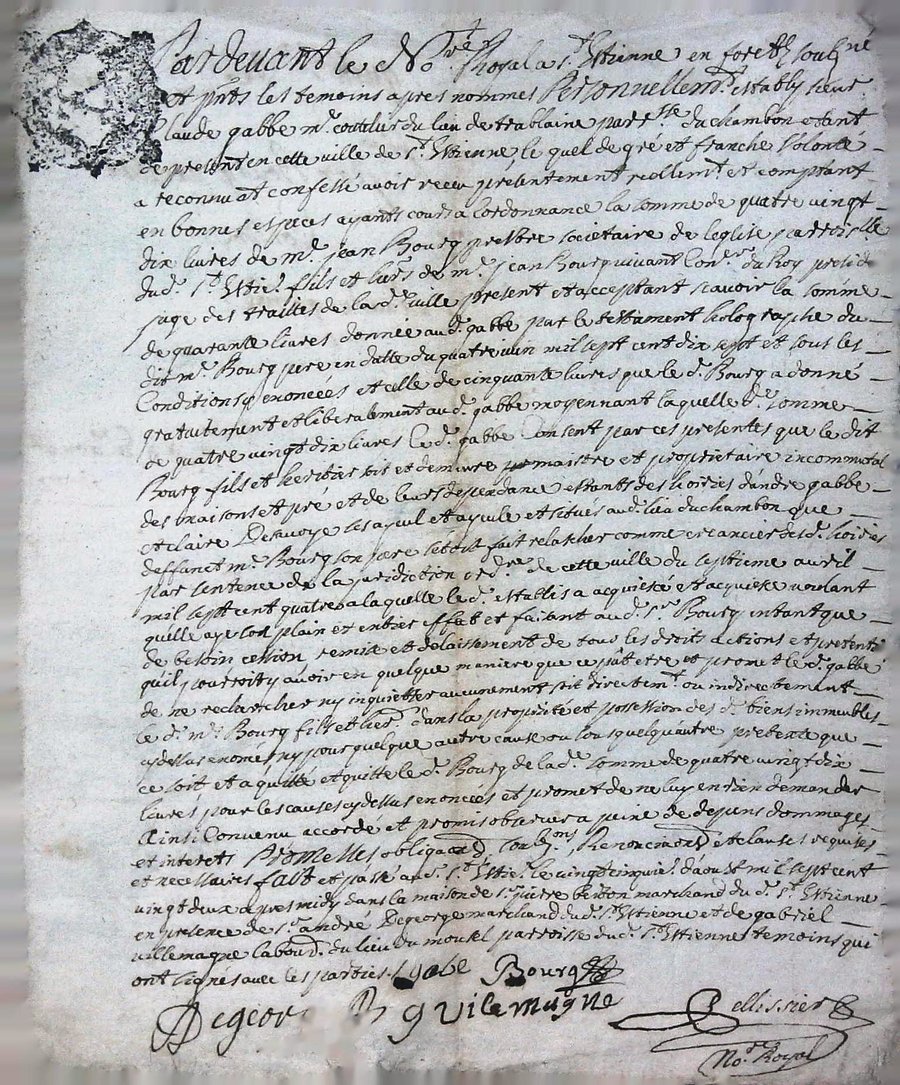 Pardevant le No.re Royal a S.t Estienne en forestz soub.ne
et pnts les temoins apres nommés Personnellem.t estably sieur
Claude gabbe m.e coutelier du lieu de trablaine parr.sse du chambon estant
de present en cette ville de S.t Estienne, le quel de gré et franche Volonte
a reconnu et confessé avoir receu presentement reellem.t et comptant
en bonnes especes ayants cours a l'ordonnance la somme de quatre vingt
dix livres de m.e jean Bourg prestre societaire de l'eglise parroisselle
dud. S.t Estie. fils et hers de m.e jean Bourg vivant Con.er du Roy
sage des tailles de lad. ville present et acceptant scavoir la somme
de quarante livres donnée aud. gabbe par le testament holographe du
dit m.e Bourg pere en datte du quatre juin mil sept cent dix sept et sous les
Conditions y enoncées et celle de cinquante livres que le d. Bourg a donné
gratuitement et liberalement aud. gabbe moyennant laquelle d. somme
de quatre vingt dix livres le d. gabbe Consent par ces presentes que le dit
Bourg fils et heritier soit et demeure maistre et proprietaire incommutal
des maisons et pré et de leurs dependance estants des hoiries d'andre gabbe
et claire Dervoye ses ayeul et ayeule et situés aud. lieu du chambon que
deffunct m.e Bourg son pere s'etoit fait relascher comme creancier desd. hoiries
par sentence de la juridiction ord.re de cette ville du septieme avril
mil sept cent quatre a laquelle le d. establis a acquiescé et acquiesce voulant
qu'elle aye son plain et entier effet et faisant aud. S.r Bourg entant que
de besoin cession remise et delaissement de tous les droits actions et pretenti
qu'il pourroit y avoir en quelque maniere que ce pût etre et promet le d. gabbe
de ne rechercher ny inquietter aucunement soit directem.t ou indirectement
le d. m.e Bourg fils et her. dans la proprieté et possession des d. biens immeubles
cydessus enomés ny pour quelque autre cause ou sous quelqu'autre pretexte que
ce soit et a quitté et quitte le d. Bourg de lad. somme de quatre vingt dix
livres pour les causes cydessus enoncées et promet de ne luy en rien demander
Ainsi Convenu accordé et promis observer a peine de depens dommages
et interets Promesses obliga.ons soub.ons Renonciaons et clauses requises
et necessaires fait et passé aud. S.t Estie. le vingt cinquie. d'aoust mil sept cent
vingt deux apres midy dans la maison de S.r pierre berton marchand du d. S.t Estienne
en presence de S.r andré Degeorge marchand dud. S.t Estienne et de gabriel
villemagne labour. du lieu du monsel parroisse dud. S.t Estienne temoins qui
ont signés avec les parties. gabe Bourg
Degeor B g vilemagne Pellissier
No.re Royal